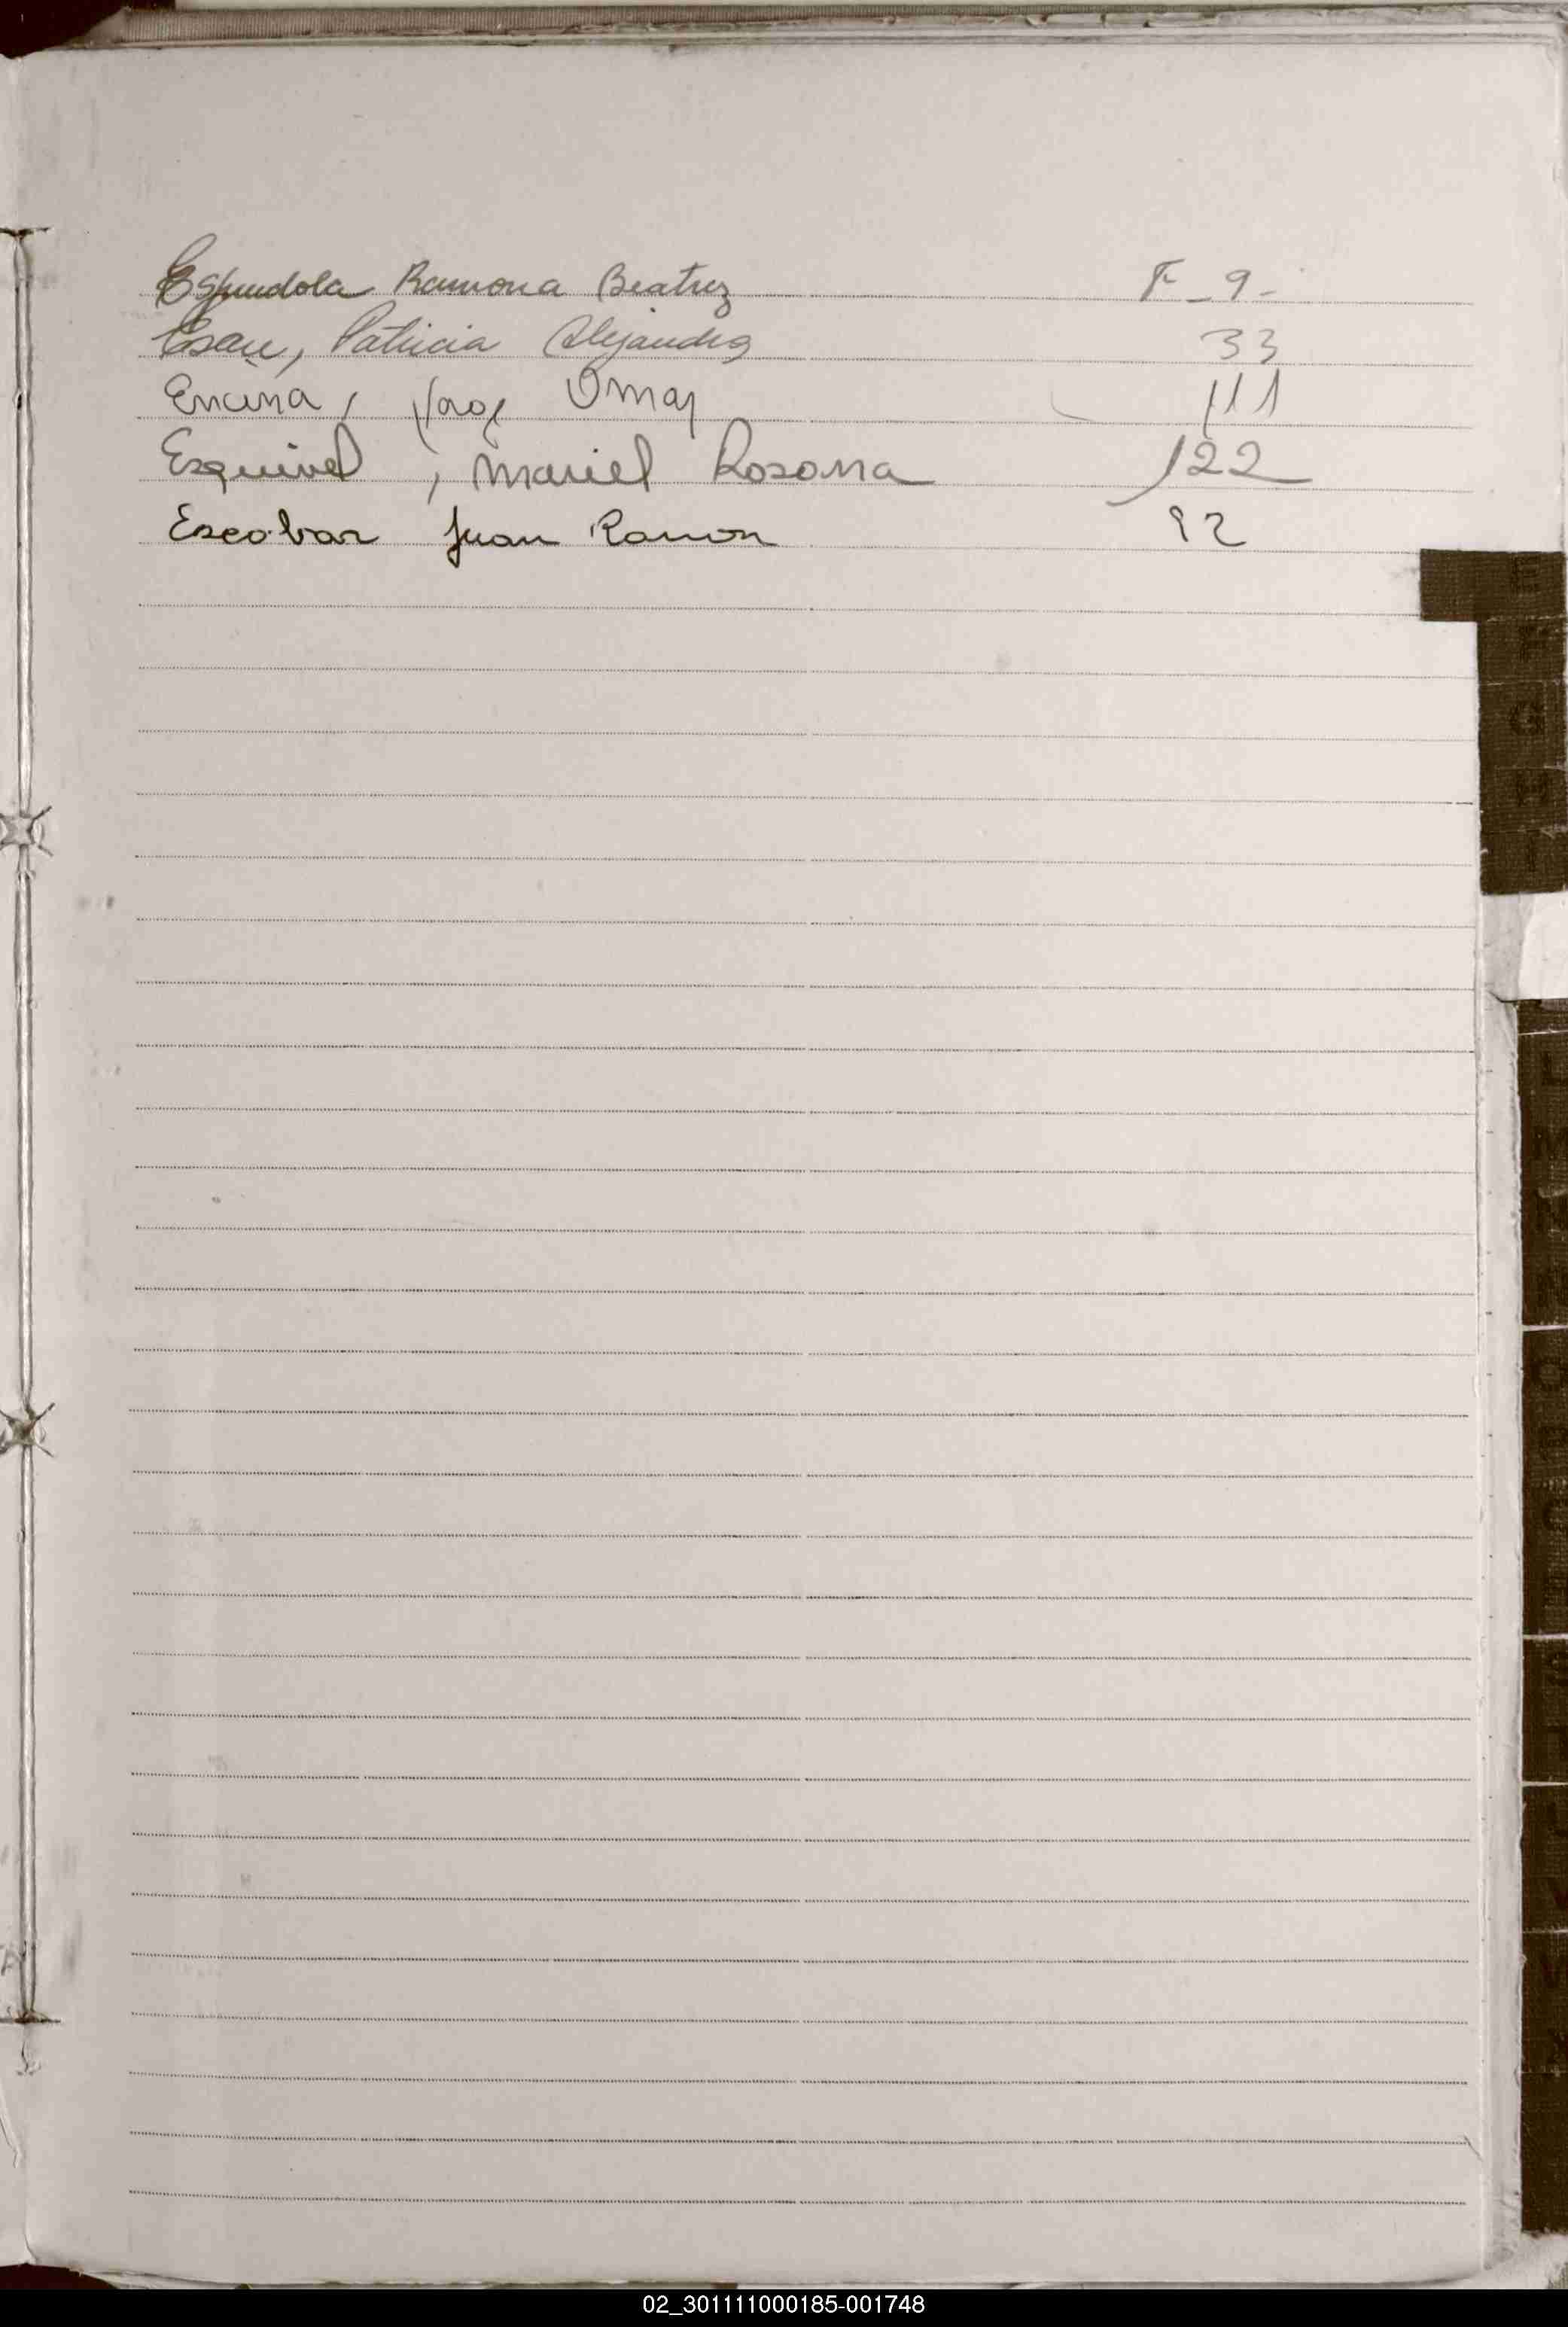 Espindola Ramona Beatriz F - 9 -
Patricia Alejandra 33
Encina, Jorge Omar 111
Esquivel, Mariel Rosana 122
Escobar Juan Ramon 92
E
F
G
H
I
L
M
02_301111000185-001748